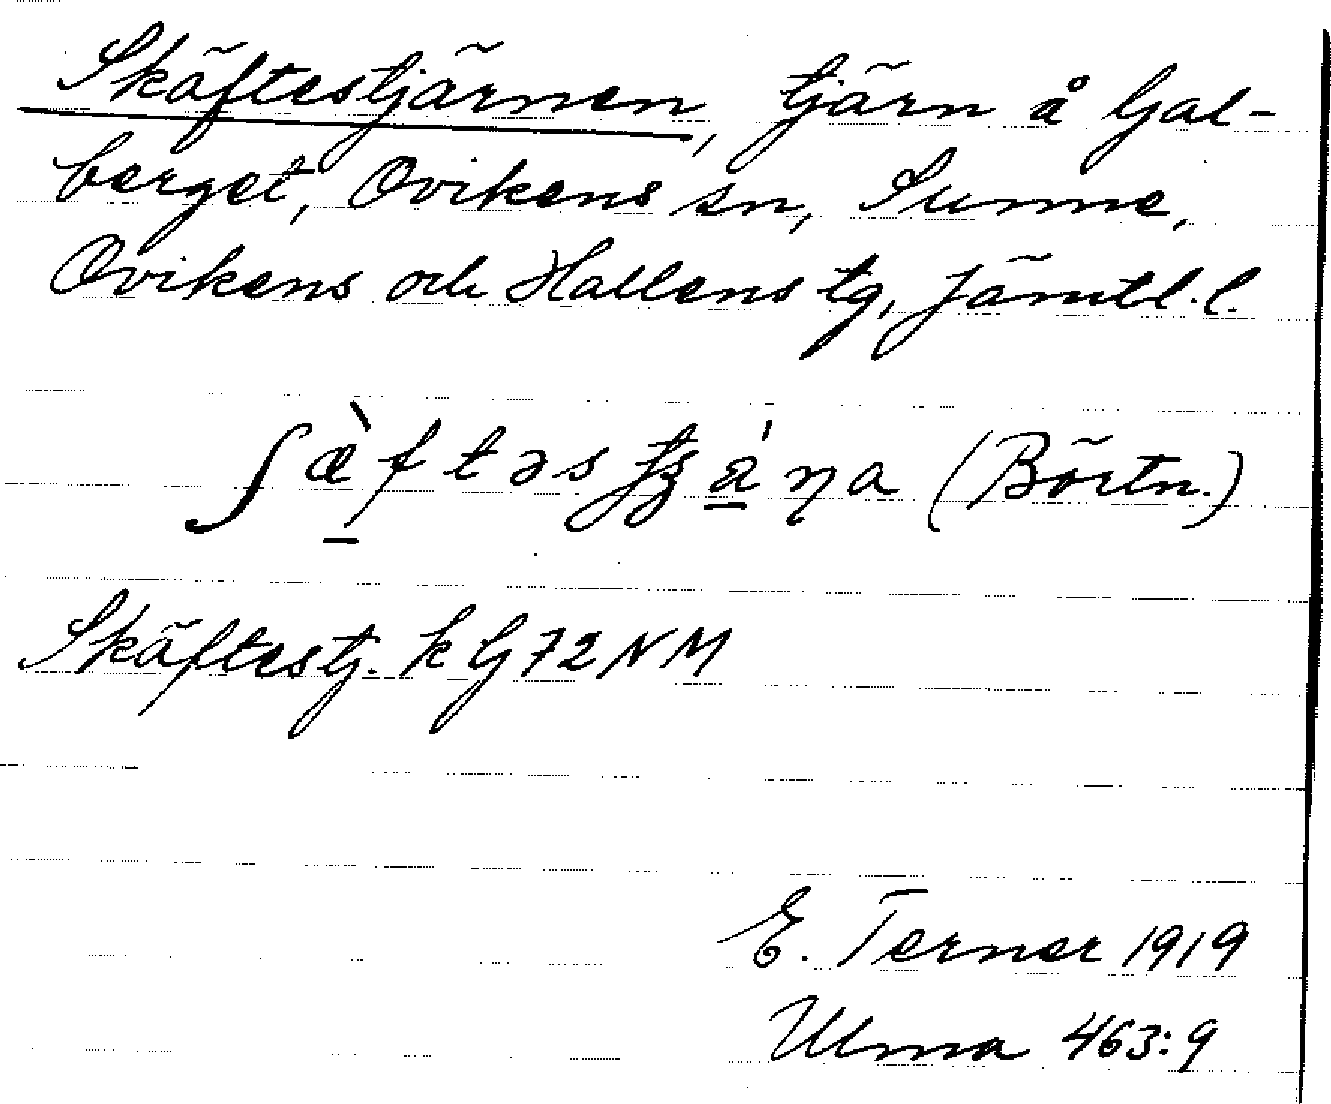 Skäftestjärnen, tjärn å Gal-
berget, Ovikens sn, Sunne,
Ovikens och Hallens tg, Jämtl. l.
(Börtn.)
Skäftestj. k G72NM
E. Terner 1919
Ulma 463:9